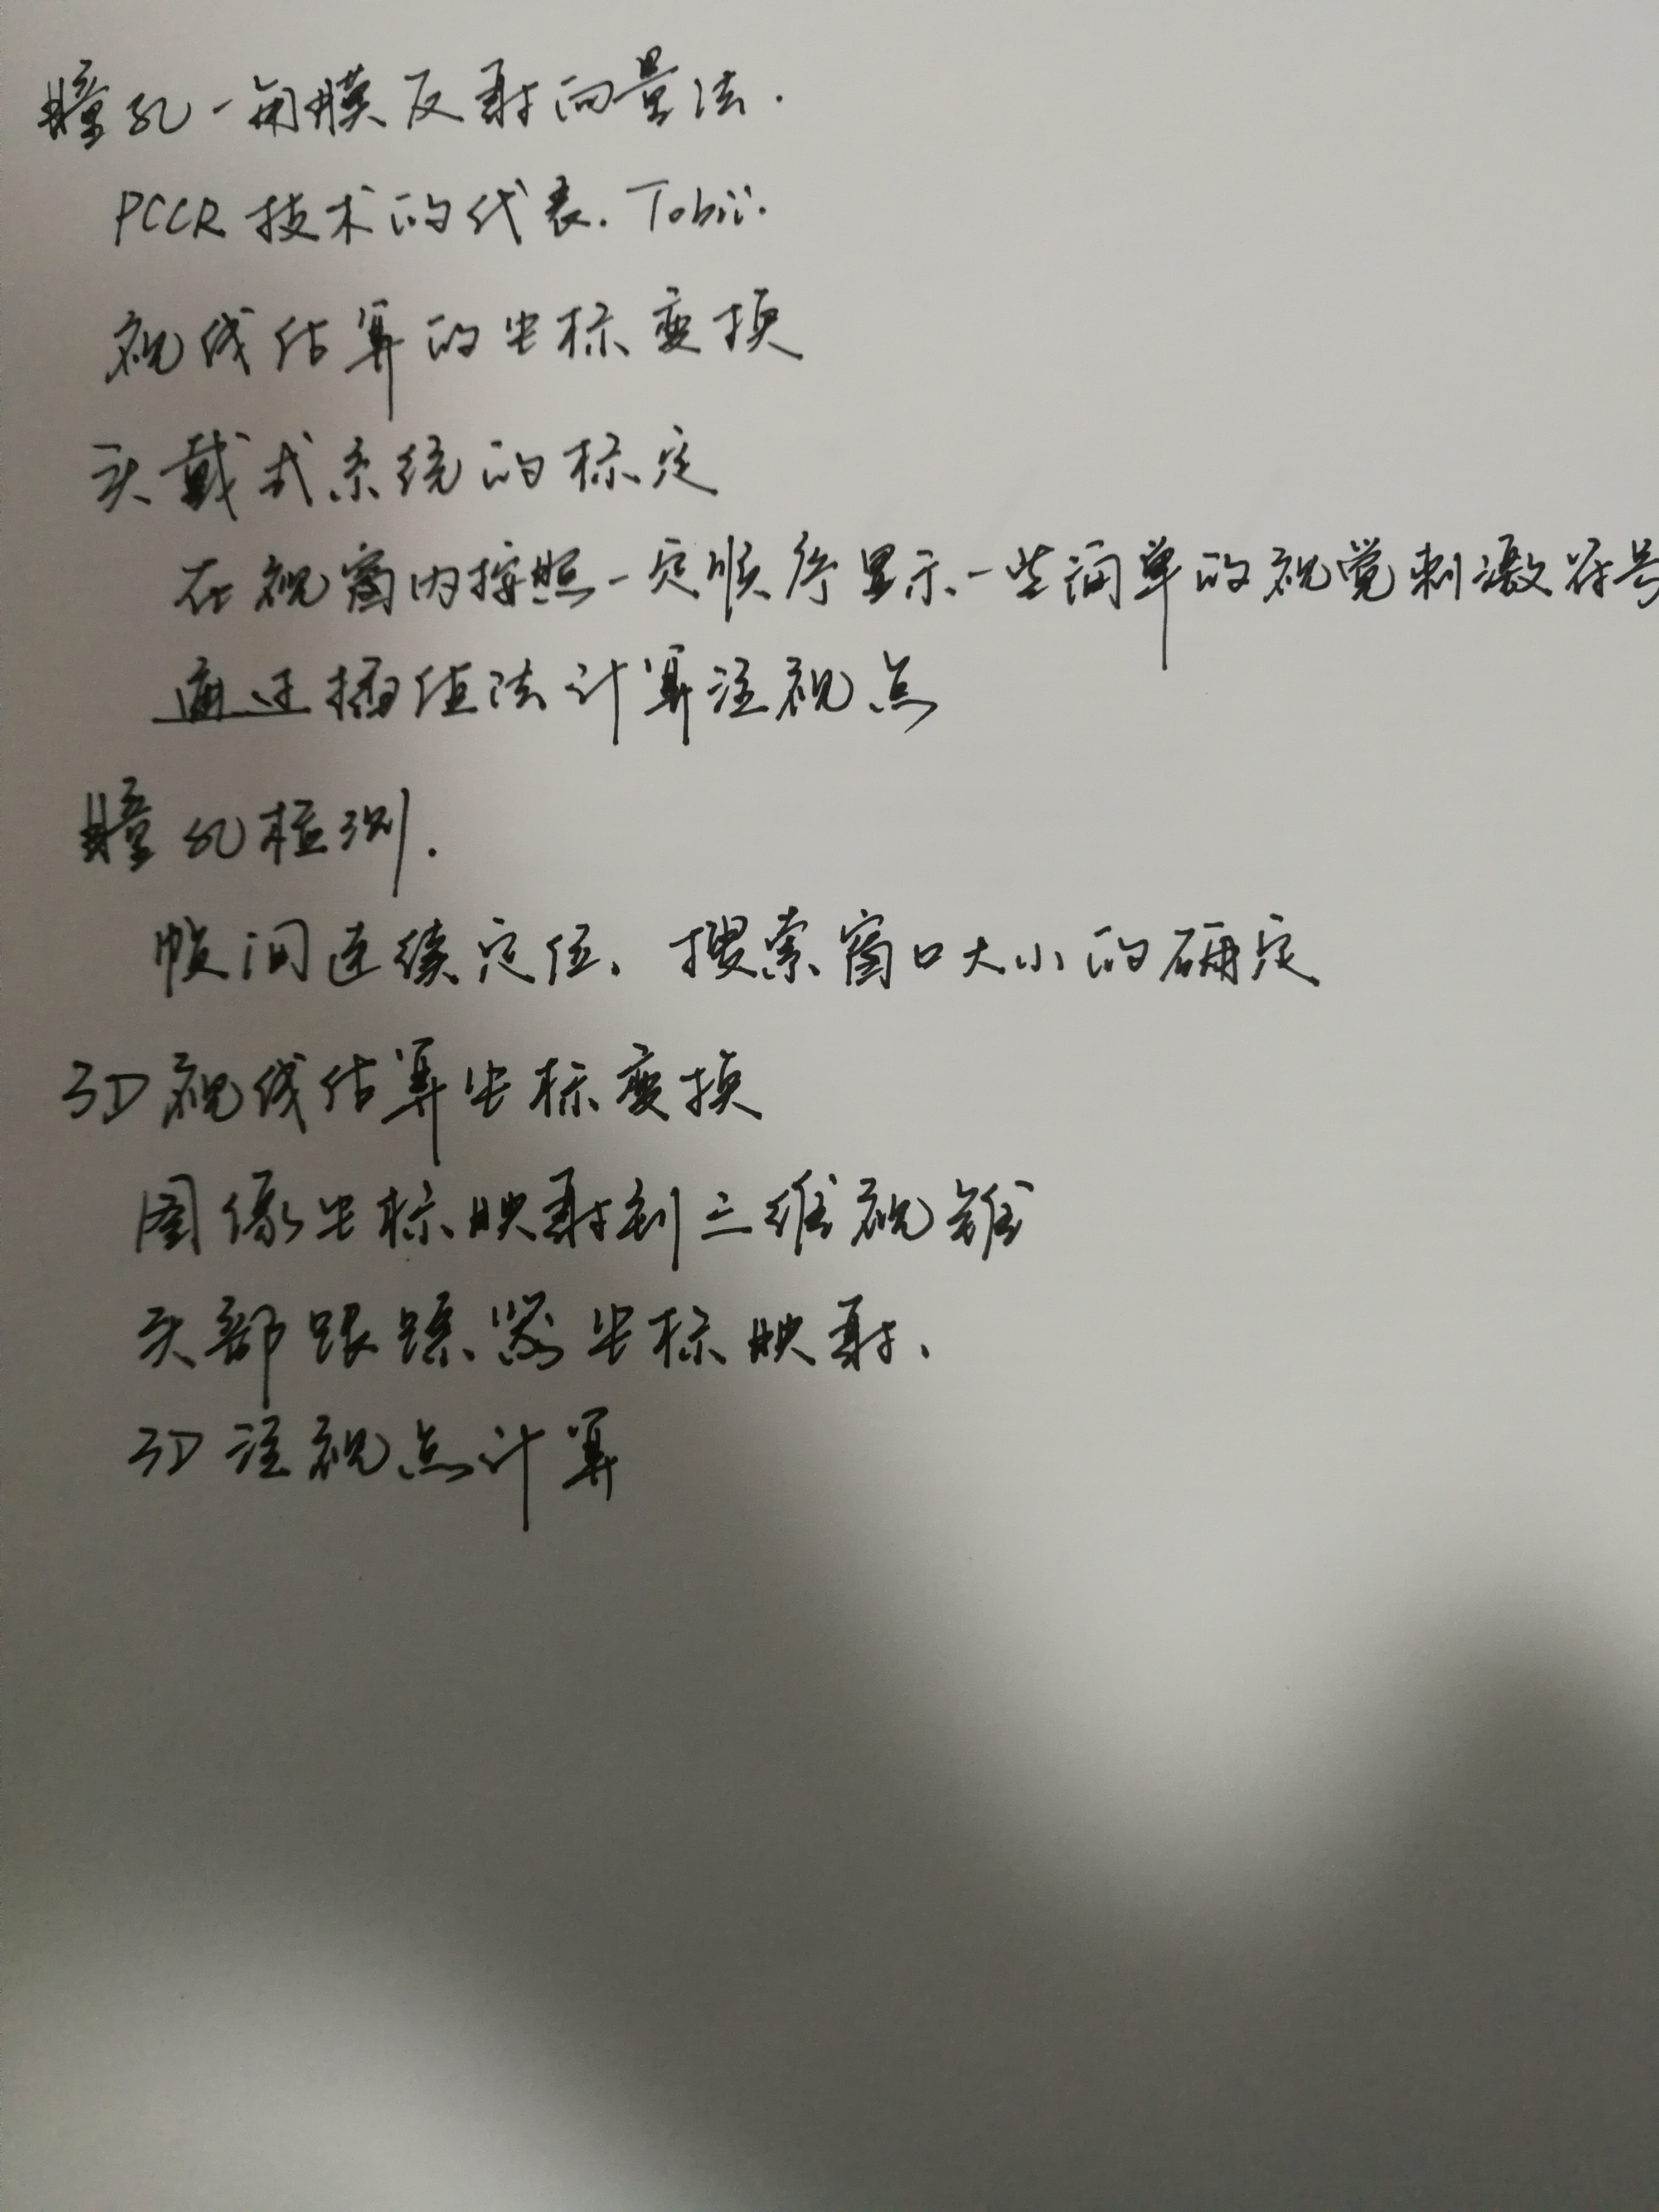 瞳孔-角膜反射向量法.
PCCR技术的代表. Tobii.
视线估算的坐标变换
头戴式系统的标定
在视窗内按照一定顺序显示一些简单的视觉刺激符号
通过插值法计算注视点
瞳孔检测.
帧间连续定位、搜索窗口大小的确定
3D视线估算坐标变换
图像坐标映射到三维视锥
头部跟踪器坐标映射、
3D注视点计算